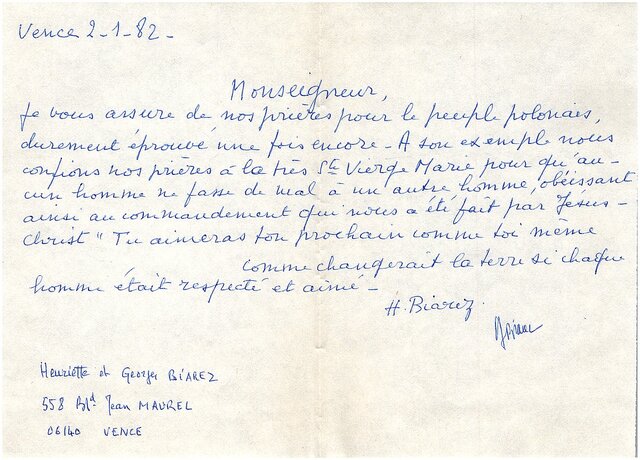 Vence 2-1-82-
Monseigneur,
Je vous assure de nos prières pour le peuple polonais,
durement éprouvé une fois encore - A son exemple nous
confions nos prières à la très Ste Vierge Marie pour qu'au-
cun homme ne fasse de mal à un autre homme, obéissant
ainsi au commandement qui nous a été fait par Jésus-
Christ " Tu aimeras ton prochain comme toi même
comme changerait la terre si chaque
homme était respecté et aimé -
H. Biarez.
Henriette et Georges BIAREZ
558 Bld Jean MAUREL
06140 VENCE